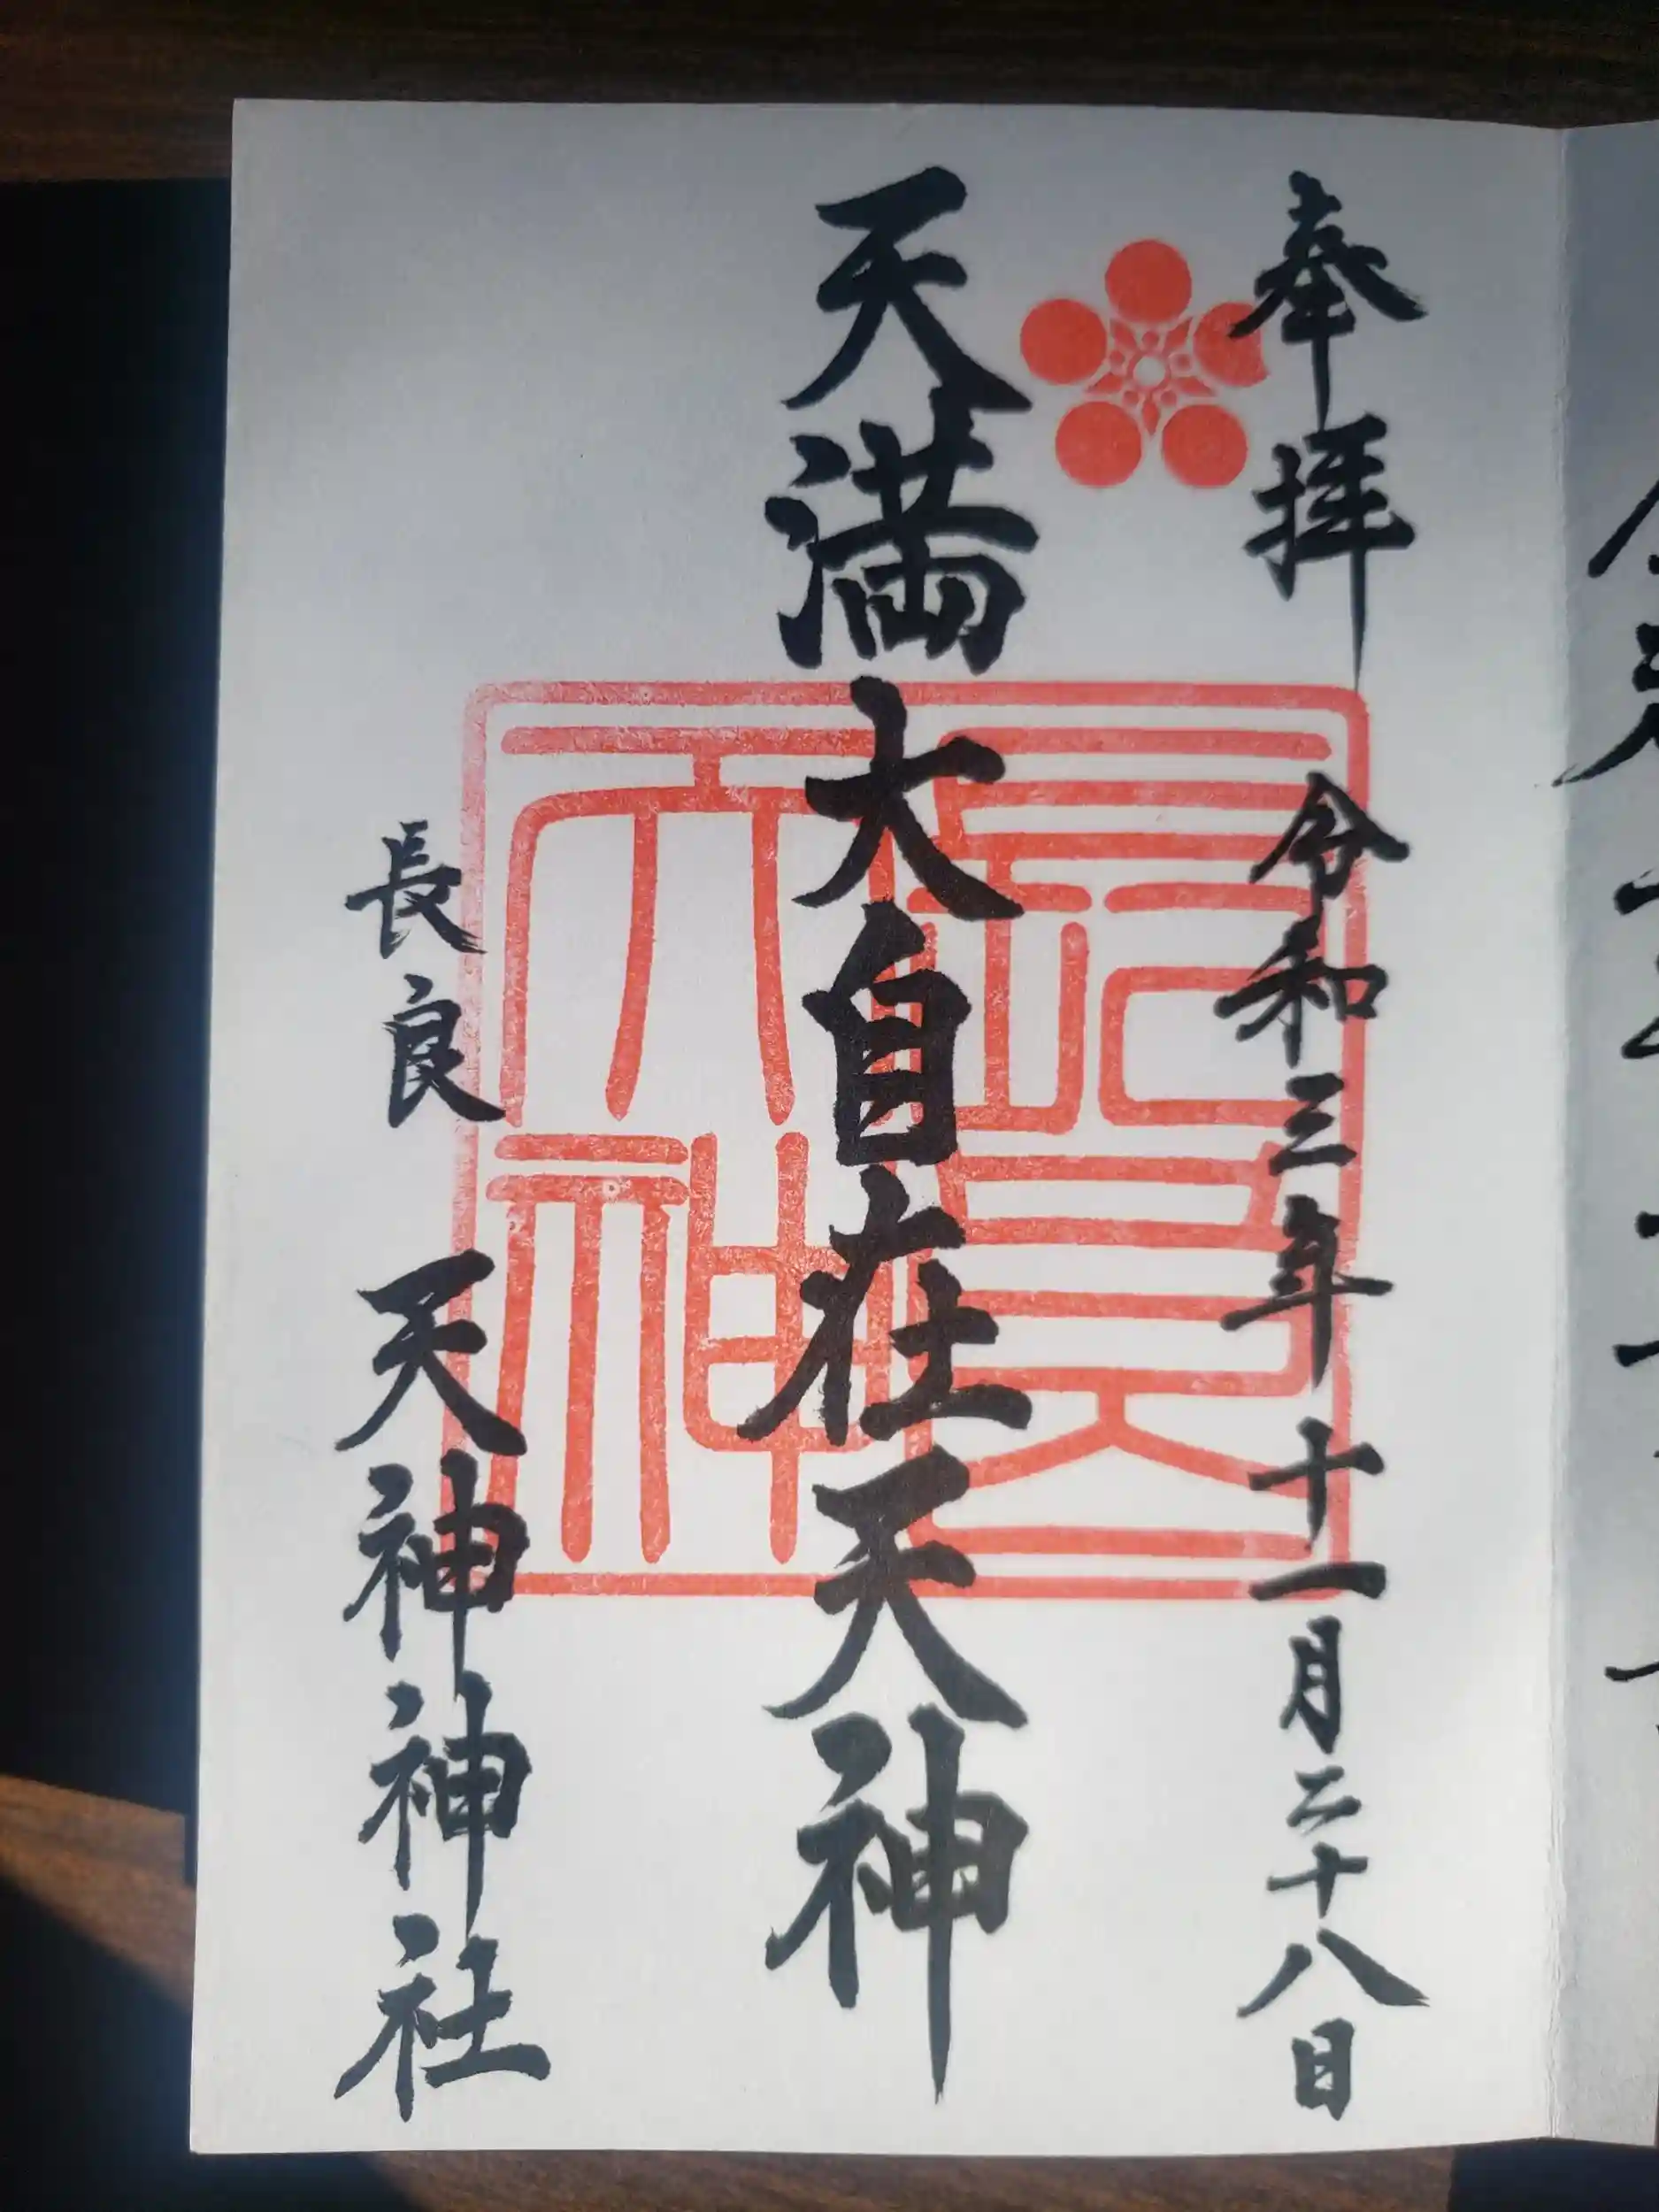 奉拝 令和三年十一月二十八日
天満大自在天神
長良 天神神社
長良天神